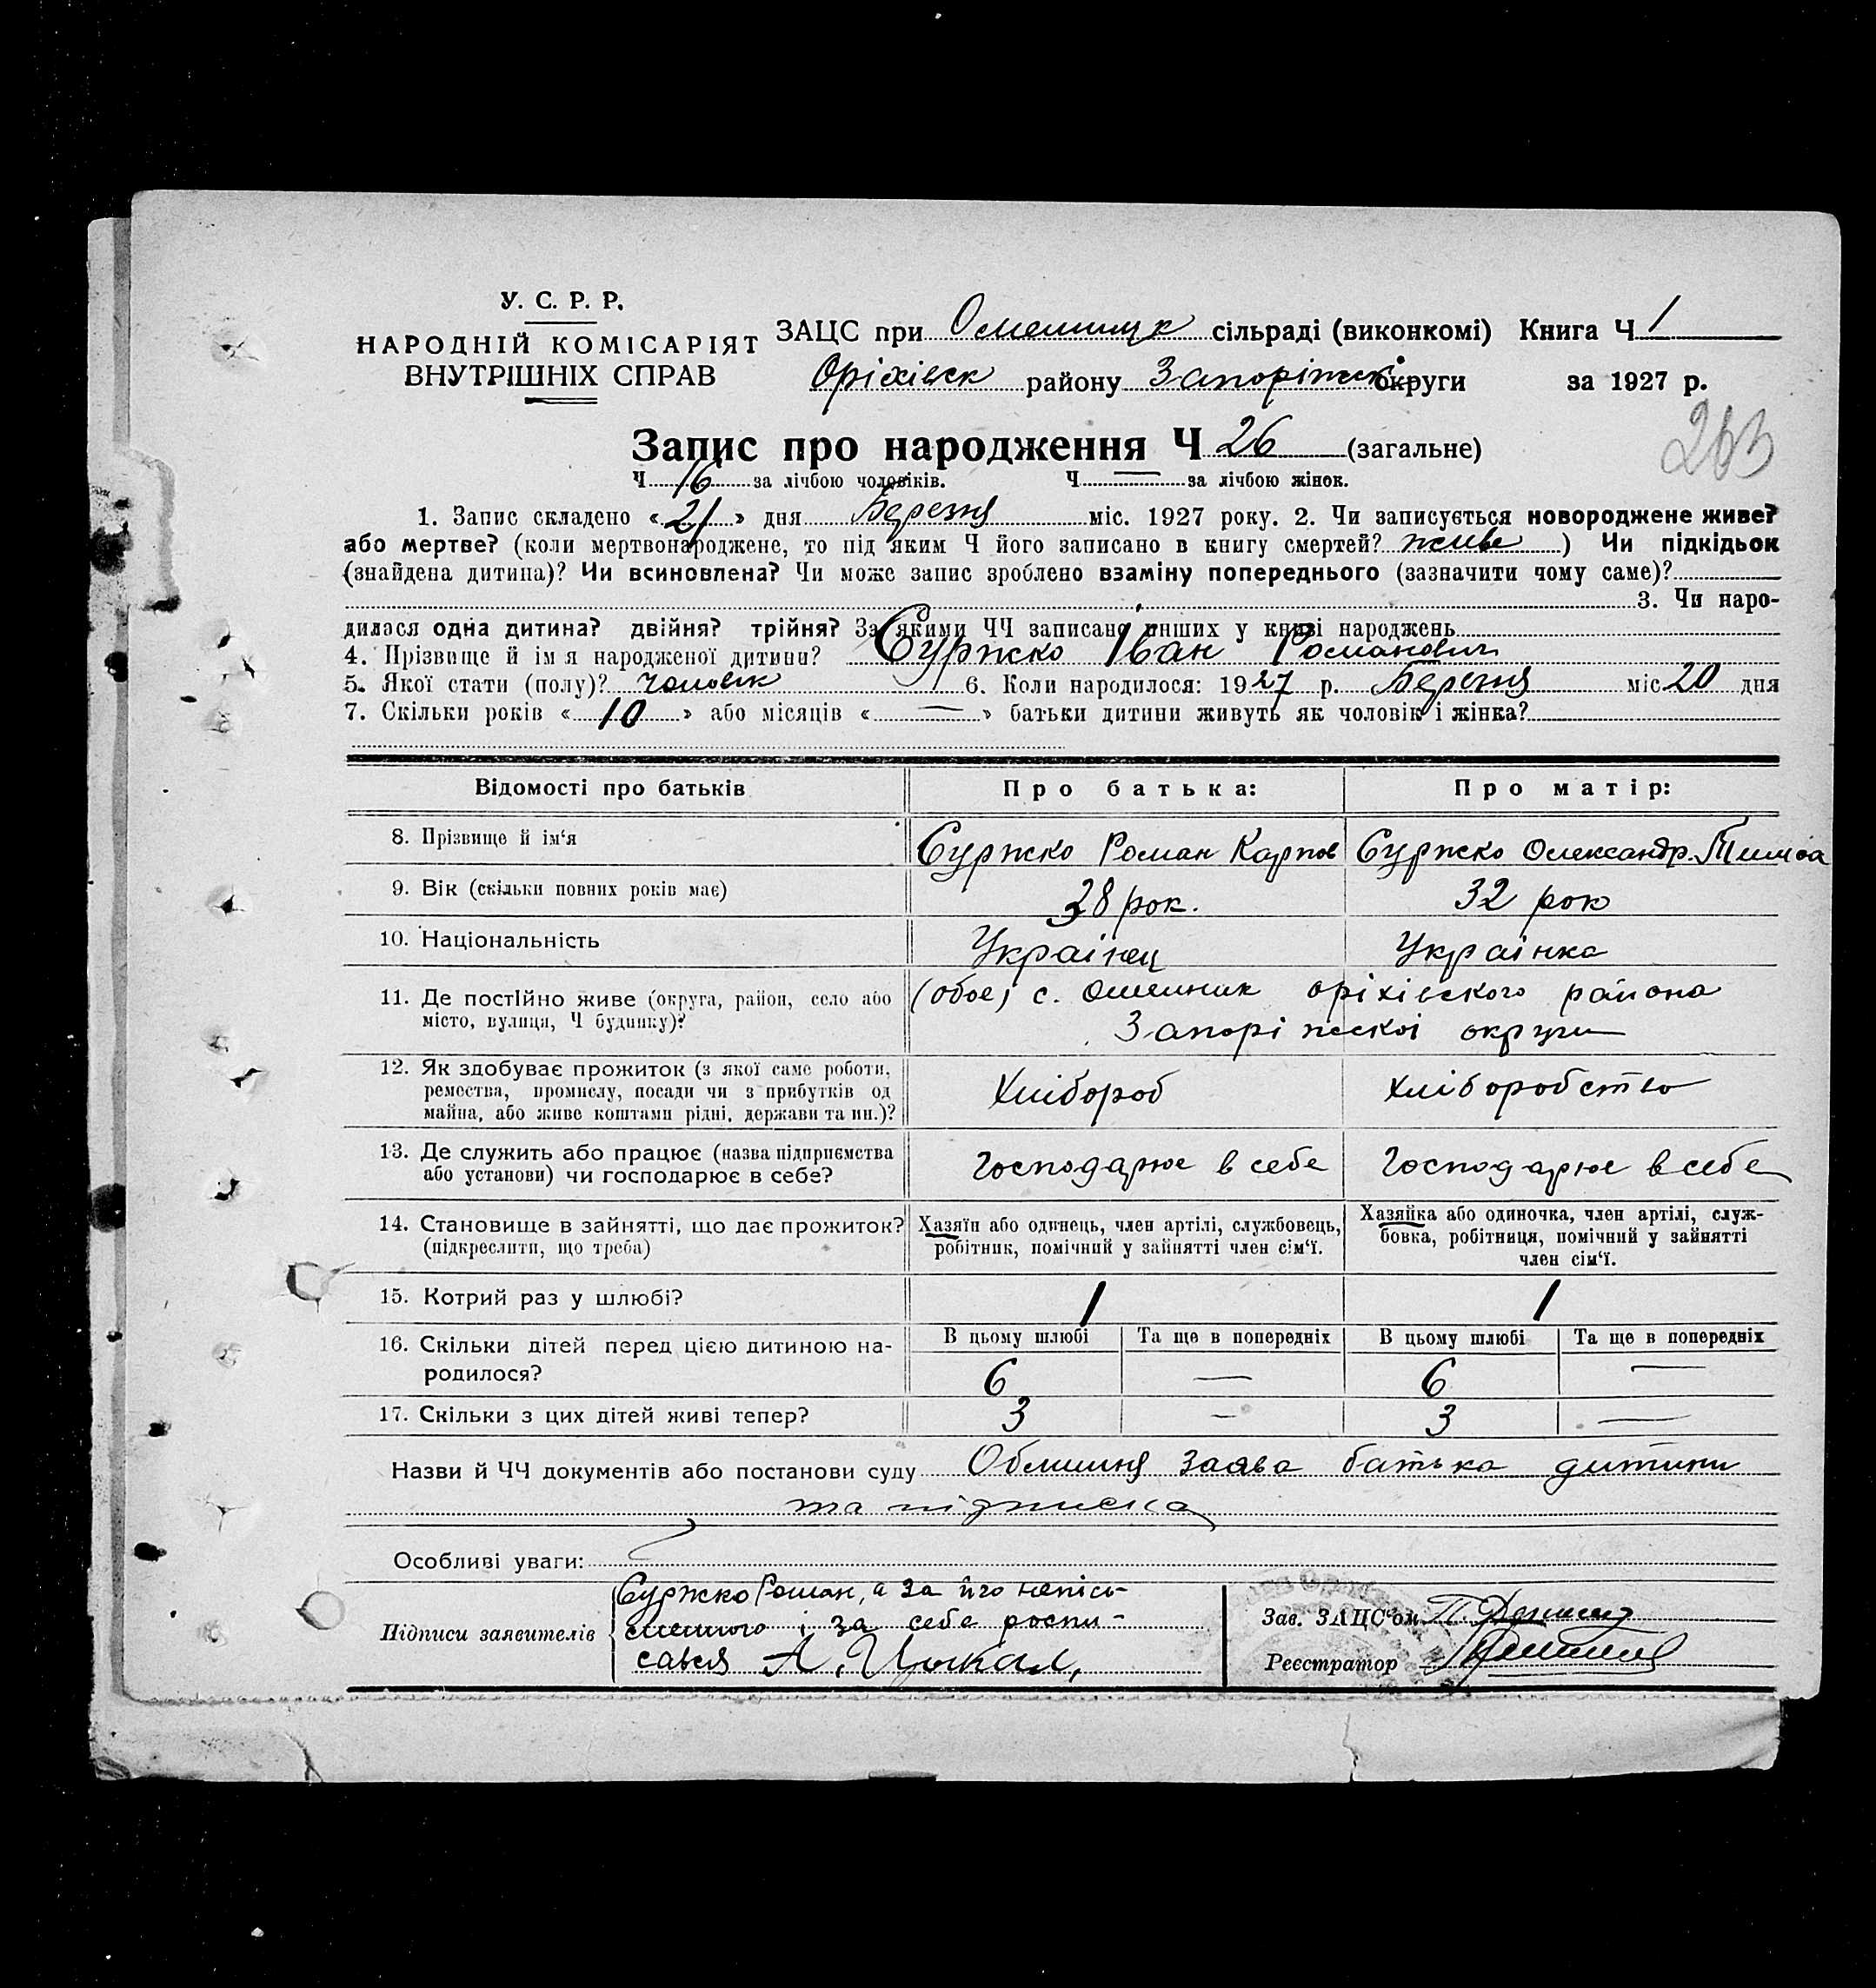 У. С. Р. Р.
НАРОДНІЙ КОМІСАРІЯТ
ВНУТРІШНІХ СПРАВ
ЗАЦС при Омельник сільраді (виконкомі) Книга Ч 1
Оріхівск району Запоріжск округи за 1927 р.
263
Запис про народження Ч 26 (загальне)
Ч 16 за лічбою чоловіків. Ч — за лічбою жінок.
1. Запис складено «21» дня Березня міс. 1927 року. 2. Чи записується новороджене живе?
або мертве? (коли мертвонароджене, то під яким Ч його записано в книгу смертей? живе) Чи підкідьок
(знайдена дитина)? Чи всиновлена? Чи може запис зроблено взаміну попереднього (зазначити чому саме)?
3. Чи наро-
дилася одна дитина? двійня? трійня? За якими ЧЧ записано инших у книзі народжень
4. Прізвище й ім я народженої дитини? Суржко Іван Романович
5. Якої стати (полу)? чоловік 6. Коли народилося: 1927 р. Березня міс 20 дня
7. Скільки років «10» або місяців «—» батьки дитини живуть як чоловік і жінка?
Відомості про батьків Про батька: Про матір:
8. Прізвище й ім‘я Суржко Роман Карпов Суржко Олександр.
9. Вік (скільки повних років має) 38 рок. 32 рок
10. Національність Українец Українка
11. Де постійно живе (округа, район, село або (обоє) с. Омельник оріхівского района
місто, вулиця, Ч будинку)? Запоріжскоі округи
12. Як здобуває прожиток (з якої саме роботи,
ремества, промислу, посади чи з прибутків од Хлібороб Хлiборобство
майна, або живе коштами рідні, держави та ин.)?
13. Де служить або працює (назва підприємства
або установи) чи господарює в себе? Господарює в себе Господарює в себе
14. Становище в зайнятті, що дає прожиток? Хазяїн або одинець, член артілі, службовець, Хазяйка або одиночка, член артілі, служ-
(підкреслити, що треба) робітник, помічний у зайнятті член сім‘ї. бовка, робітниця, помічний у зайнятті
член сім‘ї.
15. Котрий раз у шлюбі? 1 1
16. Скільки дітей перед цією дитиною на- В цьому шлюбі Та ще в попередніх В цьому шлюбі Та ще в попередніх
родилося? 6 — 6 —
17. Скільки з цих дітей живі тепер? 3 — 3 —
Назви й ЧЧ документів або постанови суду заява батька дитини
та підписка
Особливі уваги:
Суржко Роман, а за його непісь-
Підписи заявителів менного і за себе роспи-
сався А.
Зав. ЗАЦС‘ом П.
Реєстратор